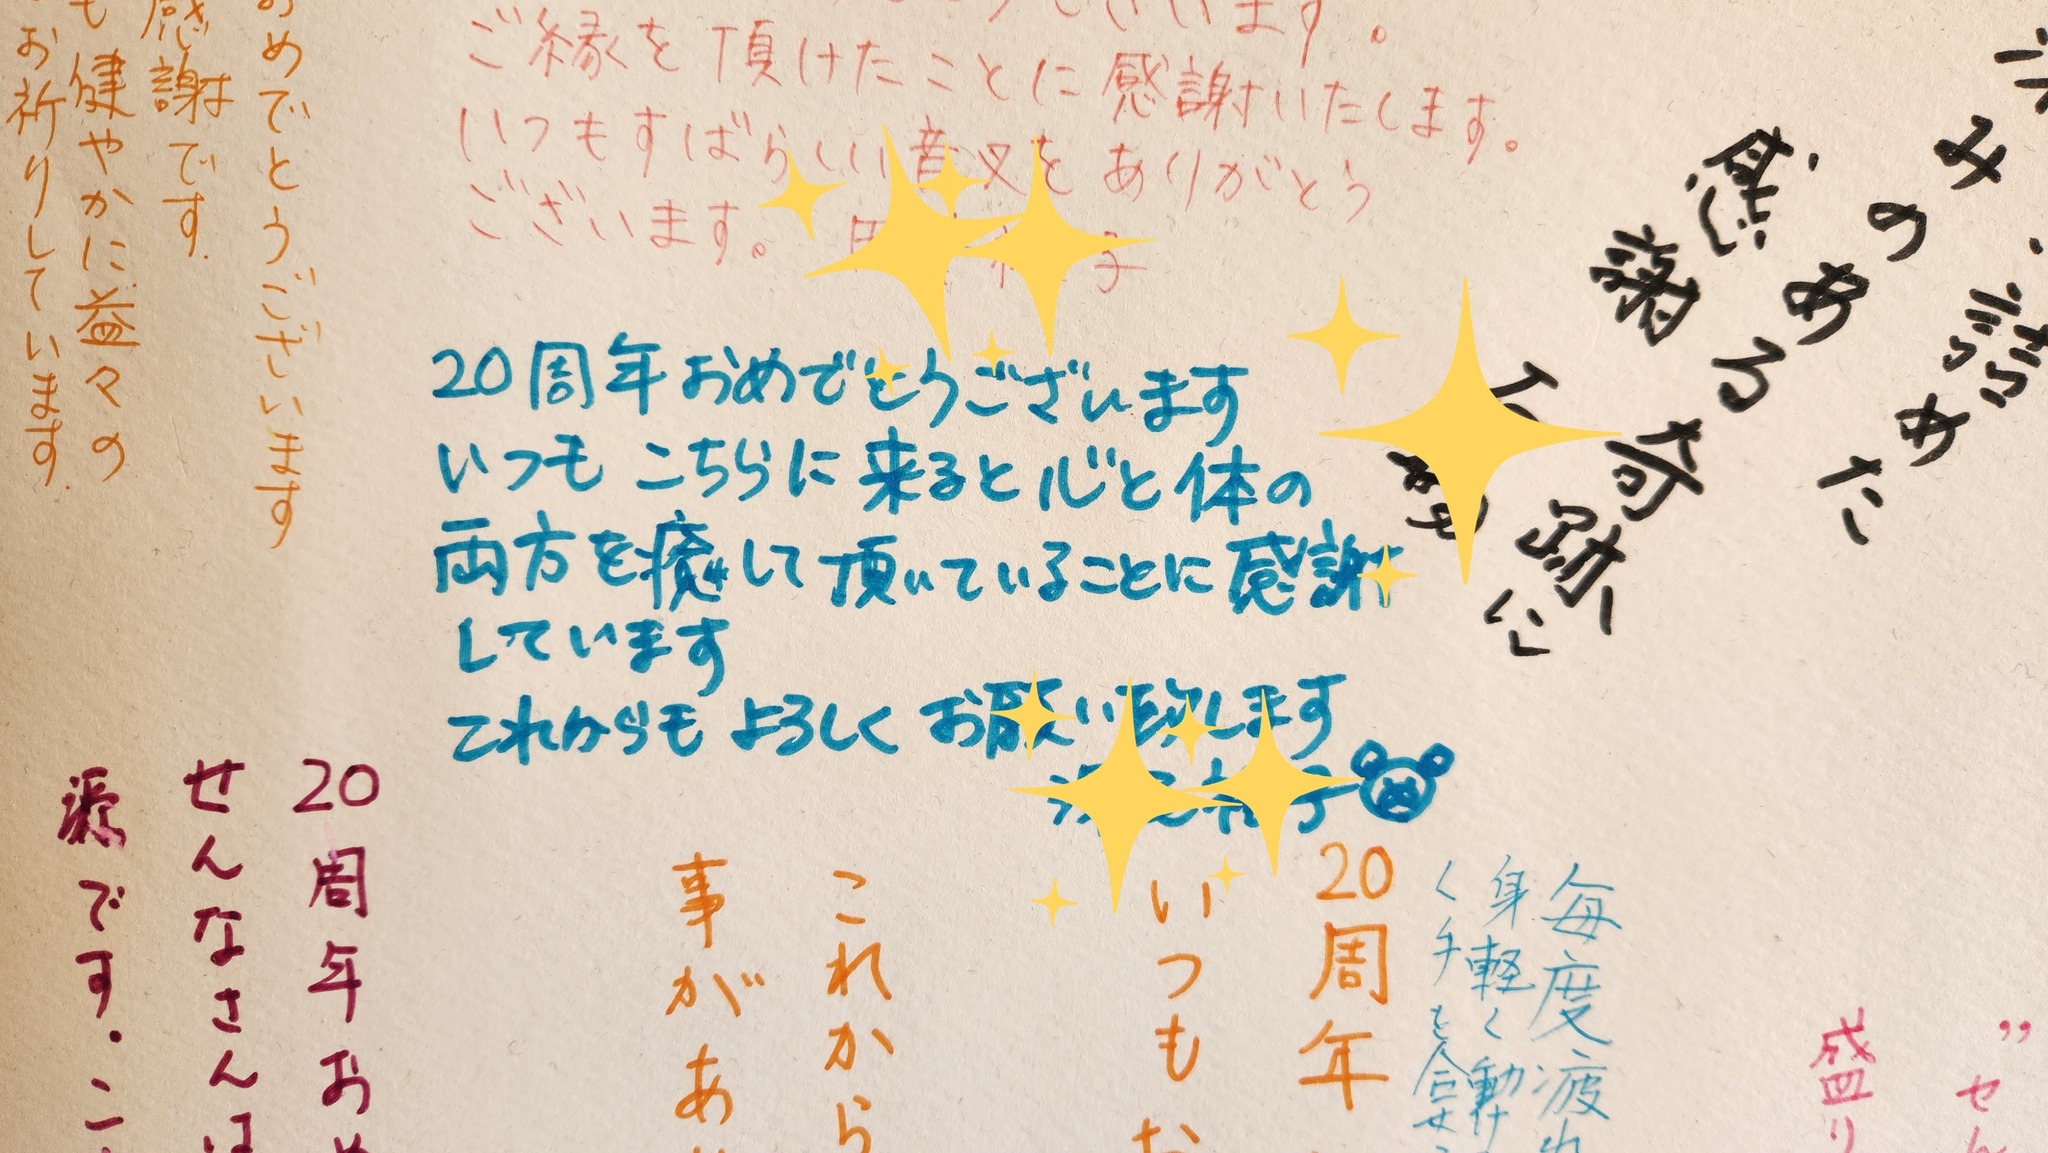 ご縁を頂けたことに感謝いたします。
いつもすばらしい音叉をありがとう
ございます。
めでとうございます
感謝です.
健やかに益々の
お祈りしています.
みのある奇跡に
感謝
詰めた
20周年おめでとうございます
いつもこちらに来ると心と体の
両方を癒して頂いていることに感謝
しています
これからもよろしくお願い致します
20周年おめ
せんなさんは
源です・こ
毎度疲れ
身軽く動け
く手を合せ
20周年
いつもお
これから
事があ
せん
盛り